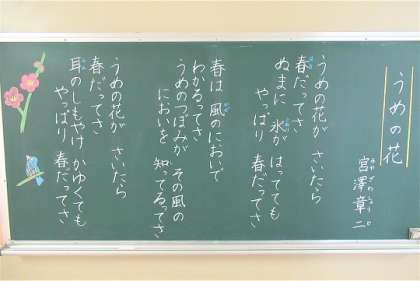 うめの花
宮澤章二
みやざわしょうじ
うめの花が さいたら
春だってさ
ぬまに 氷が はってても
やっぱり 春だってさ
春は 風のにおいで
わかるってさ
うめのつぼみが その風の
においを 知ってるってさ
うめの花が さいたら
春だってさ
耳のしもやけ かゆくても
やっぱり 春だってさ